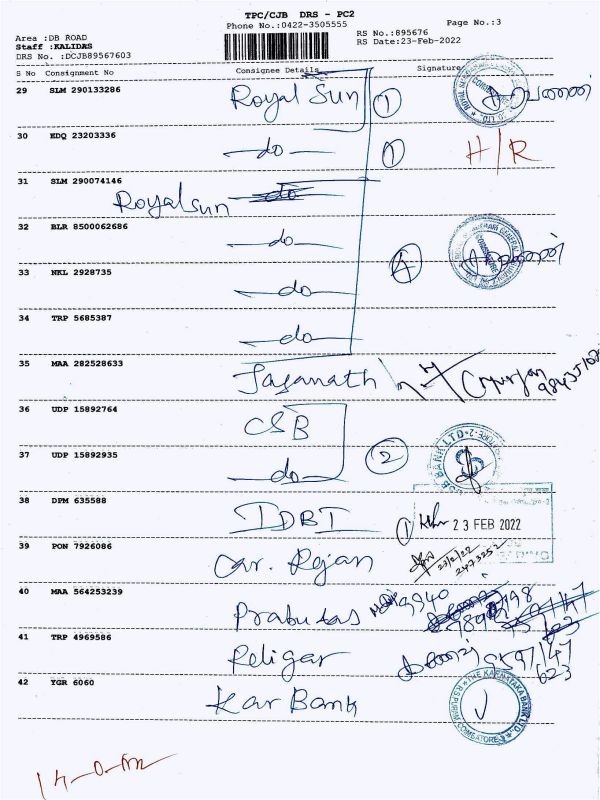 TPC/CJB DRS - PC2
Phone No.:0422-3505555
Page No.:3
Area :DB ROAD
Staff :KALIDAS
DRS No. :DCJB89567603
RS No.:895676
RS Date:23-Feb-2022
S No Consignment No Consignee Details Signature
29 SLM 290133286 Royal Sun 1
30 KDQ 23203336 —do— 1 H/R
31 SLM 290074146 do
Royal sun
32 BLR 8500062686 —do— 4
33 NKL 2928735 —do—
34 TRP 5685387 —do—
35 MAA 282528633 Jaganath
36 UDP 15892764 CSB
37 UDP 15892935 —do— 2
38 DPM 635588 IDBI 1 23 FEB 2022
39 PON 7926086 Car. Rajan 23/2/22
40 MAA 564253239 Prabutas
41 TRP 4969586 Religar
42 YGR 6060 Kar Bank
THE KARNATAKA BANK LTD
COIMBATORE